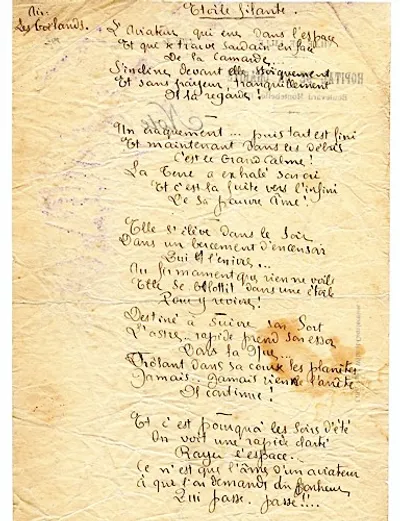 Etoile Filante.
Air
Les Goëlands.
L'Aviateur qui erre dans l'espace
Et que se trouve soudain en face
De la camarde.
S'incline devant elle stoïquement
Et sans frayeur, tranquillement
Il la regarde!
Un craquement... puis tout est fini
Et maintenant dans les débris
C'est le Grand Calme!
La Terre a exhalé son cri
Et c'est la fuite vers l'infini
De sa pauvre âme!
Elle s'élève dans le soir
Dans un bercement d'encensoir
Qui l'enivre...
Au firmament que rien ne voile
Elle se blottit dans une étoile
Pour y revivre!
Destiné à suivre son sort
L'astre.. rapide prend son essor
Dans la nue...
Frôlant dans sa course les planètes
Jamais.. jamais rien ne l'arrête
Il continue!
Et c'est pourquoi les soirs d'été
On voit une rapide clarté
Rayer l'espace..
Ce n'est que l'âme d'un aviateur
à que l'on demande du bonheur
Qui passe.. passe!!..
HOPITAL
Boulevard Montebello